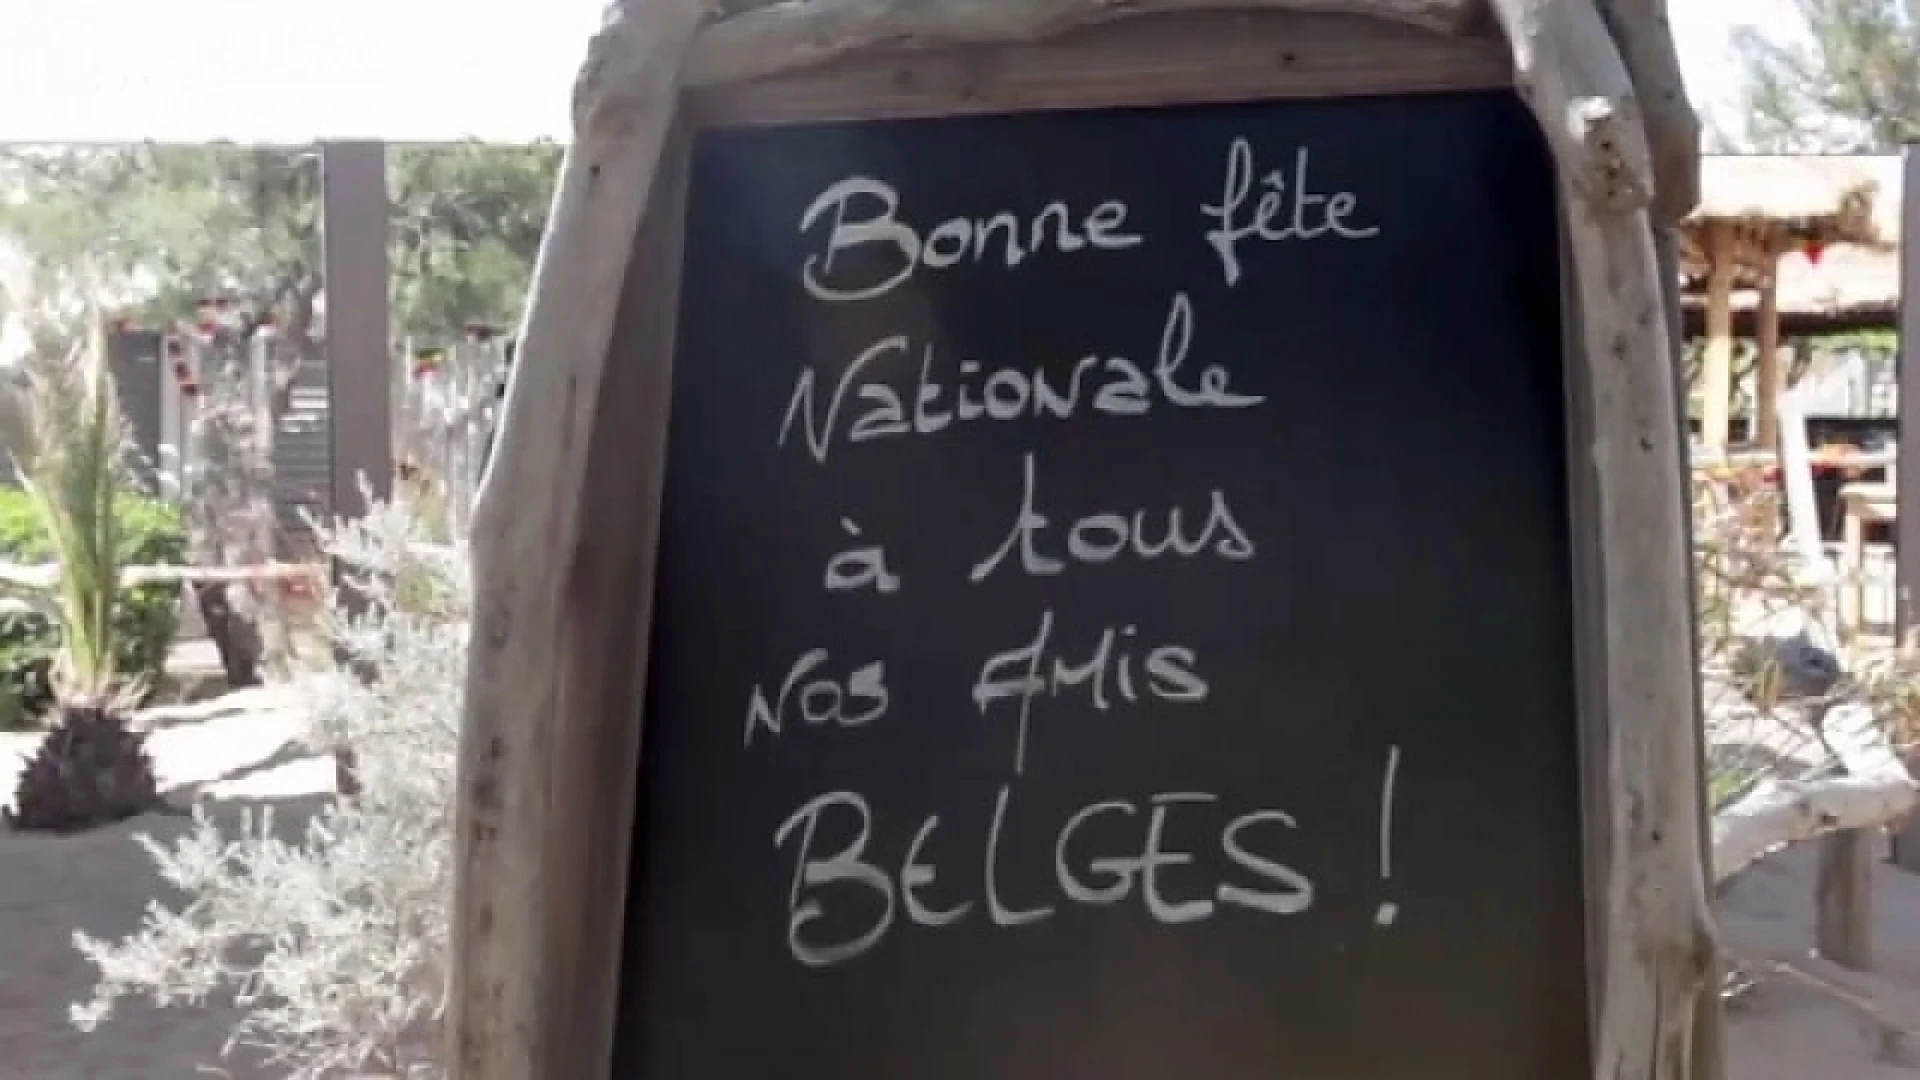 Bonne fête
Nationale
à tous
nos Amis
BELGES !